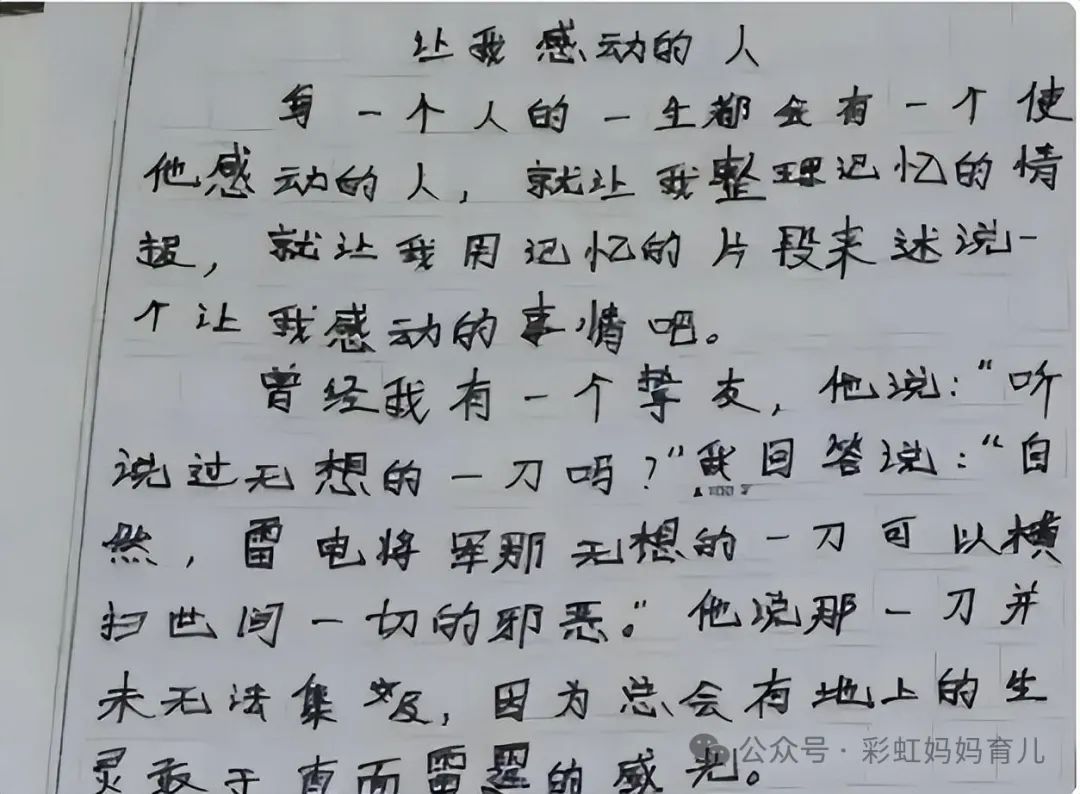 让我感动的人
每一个人的一生都会有一个使
他感动的人，就让我整理记忆的情
，就让我用记忆的片段来述说一
个让我感动的事情吧。
曾经我有一个挚友，他说：“听
说过无想的一刀吗？”我回答说：“自
然，雷电将军那无想的一刀可以横
扫世间一切的邪恶。”他说那一刀并
未无法集及，因为总会有地上的生
灵敢于直面雷霆的威光。
公众号·彩虹妈妈育儿